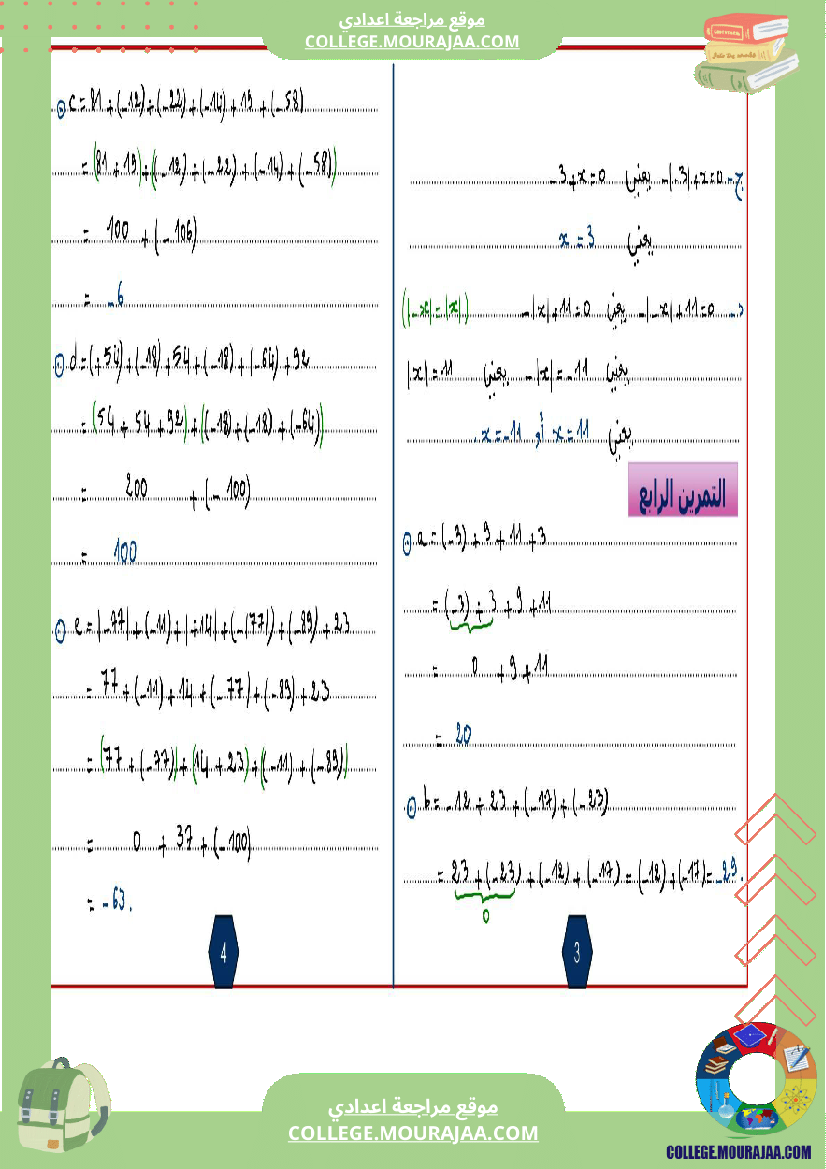 موقع مراجعة اعدادي
COLLEGE.MOURAJAA.COM
ج- -|-3|+x=0 يعني -3+x=0
يعني x=3
د- -|-x|+11=0 يعني -|x|+11=0 (|-x|=|x|)
يعني -|x|=-11 يعني |x|=11
يعني x=11 أو x=-11.
التمرين الرابع
a=(-3)+9+11+3
=(-3)+3+9+11
= 0 +9+11
= 20
b=-12+23+(-17)+(-23)
=23+(-23)+(-12)+(-17)=(-12)+(-17)=-29.
0
3
c=81+(-12)+(-22)+(-14)+19+(-58)
=(81+19)+((-12)+(-22)+(-14)+(-58))
= 100 +(-106)
= -6
d=(+54)+(-18)+54+(-18)+(-64)+92
=(54+54+92)+((-18)+(-18)+(-64))
= 200 +(-100)
= 100
e=|-77|+(-11)+|+14|+(-|77|)+(-89)+23
=77+(-11)+14+(-77)+(-89)+23
=(77+(-77))+(14+23)+((-11)+(-89))
= 0 +37+(-100)
= -63.
4
موقع مراجعة اعدادي
COLLEGE.MOURAJAA.COM
COLLEGE.MOURAJAA.COM